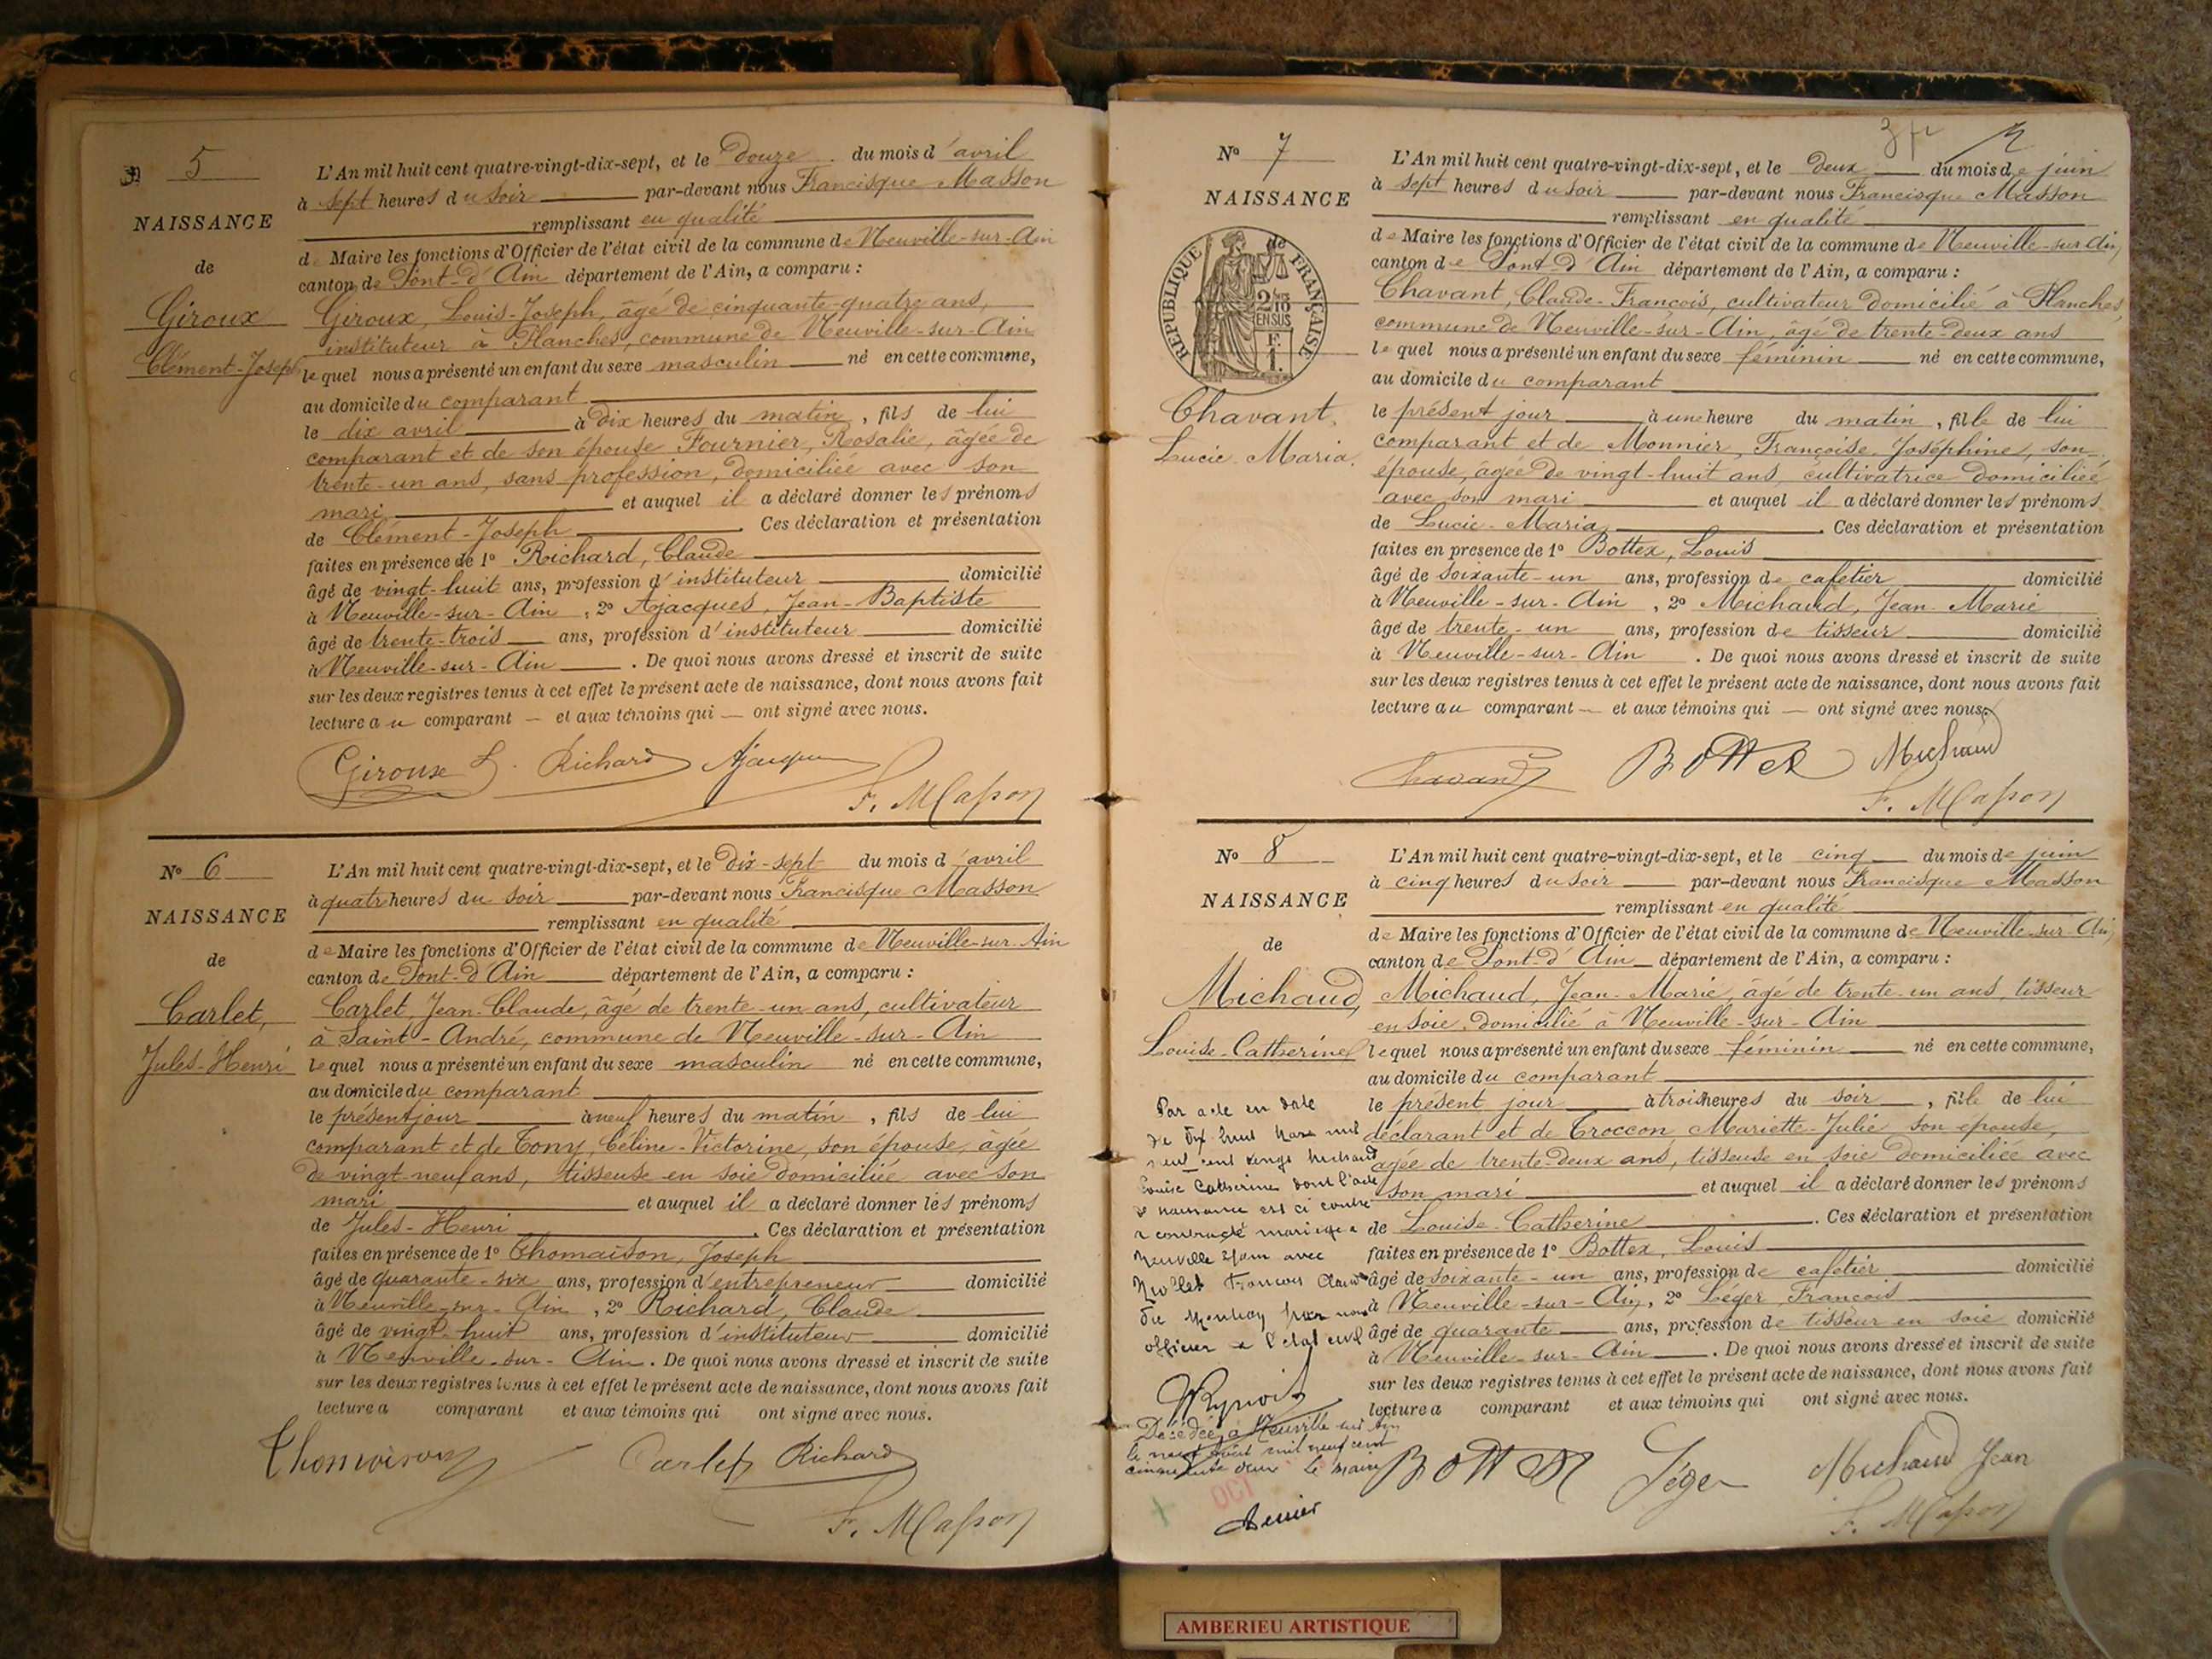 No 5
NAISSANCE
de
Giroux
Clément-Joseph
L'An mil huit cent quatre-vingt-dix-sept, et le douze du mois d'avril
à sept heures du soir par-devant nous Francisque Masson
remplissant en qualité
de Maire les fonctions d'Officier de l'état civil de la commune de Neuville-sur-Ain
canton de Pont-d'Ain département de l'Ain, a comparu :
Giroux, Louis-Joseph, âgé de cinquante-quatre ans,
instituteur à Planches, commune de Neuville-sur-Ain
lequel nous a présenté un enfant du sexe masculin né en cette commune,
au domicile du comparant
le dix avril à dix heures du matin, fils de lui
comparant et de son épouse Fournier, Rosalie, âgée de
trente-un ans, sans profession, domiciliée avec son
mari et auquel il a déclaré donner les prénoms
de Clément-Joseph. Ces déclaration et présentation
faites en présence de 1º Richard, Claude
âgé de vingt-huit ans, profession d'instituteur domicilié
à Neuville-sur-Ain, 2º Ajacques, Jean-Baptiste
âgé de trente-trois ans, profession d'instituteur domicilié
à Neuville-sur-Ain. De quoi nous avons dressé et inscrit de suite
sur les deux registres tenus à cet effet le présent acte de naissance, dont nous avons fait
lecture au comparant — et aux témoins qui — ont signé avec nous.
Giroux L. Richard Ajacques
F. Masson
No 6
NAISSANCE
de
Carlet,
Jules-Henri
L'An mil huit cent quatre-vingt-dix-sept, et le dix-sept du mois d'avril
à quatre heures du soir par-devant nous Francisque Masson
remplissant en qualité
de Maire les fonctions d'Officier de l'état civil de la commune de Neuville-sur-Ain
canton de Pont-d'Ain département de l'Ain, a comparu :
Carlet, Jean-Claude, âgé de trente-un ans, cultivateur
à Saint-André, commune de Neuville-sur-Ain
lequel nous a présenté un enfant du sexe masculin né en cette commune,
au domicile du comparant
le présent jour à neuf heures du matin, fils de lui
comparant et de Tony, Céline-Victorine, son épouse, âgée
de vingt neuf ans, tisseuse en soie domiciliée avec son
mari et auquel il a déclaré donner les prénoms
de Jules-Henri. Ces déclaration et présentation
faites en présence de 1º Thomaison, Joseph
âgé de quarante-six ans, profession d'entrepreneur domicilié
à Neuville-sur-Ain, 2º Richard, Claude
âgé de vingt-huit ans, profession d'instituteur domicilié
à Neuville-sur-Ain. De quoi nous avons dressé et inscrit de suite
sur les deux registres tenus à cet effet le présent acte de naissance, dont nous avons fait
lecture a comparant et aux témoins qui ont signé avec nous.
Thomaison Carlet Richard
F. Masson
No 7
NAISSANCE
RÉPUBLIQUE FRANÇAISE
2/10
EN SUS
F.
1.
Chavant,
Lucie-Maria.
L'An mil huit cent quatre-vingt-dix-sept, et le deux du mois de juin
à sept heures du soir par-devant nous Francisque Masson
remplissant en qualité
de Maire les fonctions d'Officier de l'état civil de la commune de Neuville-sur-Ain,
canton de Pont-d'Ain département de l'Ain, a comparu :
Chavant, Claude-François, cultivateur domicilié à Planches,
commune de Neuville-sur-Ain, âgé de trente-deux ans
lequel nous a présenté un enfant du sexe féminin né en cette commune,
au domicile du comparant
le présent jour à une heure du matin, fille de lui
comparant et de Monnier, Françoise Joséphine, son
épouse, âgée de vingt-huit ans, cultivatrice domiciliée
avec son mari et auquel il a déclaré donner les prénoms
de Lucie-Maria. Ces déclaration et présentation
faites en présence de 1º Bottex, Louis
âgé de soixante-un ans, profession de cafetier domicilié
à Neuville-sur-Ain, 2º Michaud, Jean-Marie
âgé de trente-un ans, profession de tisseur domicilié
à Neuville-sur-Ain. De quoi nous avons dressé et inscrit de suite
sur les deux registres tenus à cet effet le présent acte de naissance, dont nous avons fait
lecture au comparant — et aux témoins qui — ont signé avec nous.
Chavant Bottex Michaud
F. Masson
No 8
NAISSANCE
de
Michaud,
Louise-Catherine
L'An mil huit cent quatre-vingt-dix-sept, et le cinq du mois de juin
à cinq heures du soir par-devant nous Francisque Masson
remplissant en qualité
de Maire les fonctions d'Officier de l'état civil de la commune de Neuville-sur-Ain,
canton de Pont-d'Ain département de l'Ain, a comparu :
Michaud, Jean-Marie, âgé de trente-un ans, tisseur
en soie, domicilié à Neuville-sur-Ain
lequel nous a présenté un enfant du sexe féminin né en cette commune,
au domicile du comparant
le présent jour à trois heures du soir, fille de lui
déclarant et de Troccon Mariette-Julie son épouse,
agée de trente-deux ans, tisseuse en soie domiciliée avec
son mari et auquel il a déclaré donner les prénoms
de Louise-Catherine. Ces déclaration et présentation
faites en présence de 1º Bottex, Louis
âgé de soixante-un ans, profession de cafetier domicilié
à Neuville-sur-Ain, 2º Léger, François
âgé de quarante ans, profession de tisseur en soie domicilié
à Neuville-sur-Ain. De quoi nous avons dressé et inscrit de suite
sur les deux registres tenus à cet effet le présent acte de naissance, dont nous avons fait
lecture a comparant et aux témoins qui ont signé avec nous.
Par acte en date
de dix huit mars mil
neuf cent vingt Michaud
Louise Catherine dont l'acte
de naissance est ci contre
a contracté mariage a
Neuville s/ain avec
Nollet François Claude
officier de l'etat civil
Décédée à Neuville sur Ain
le neuf août mil neuf cent
cinquante deux Le Maire
Bottex Léger Michaud Jean
F. Masson
AMBERIEU ARTISTIQUE